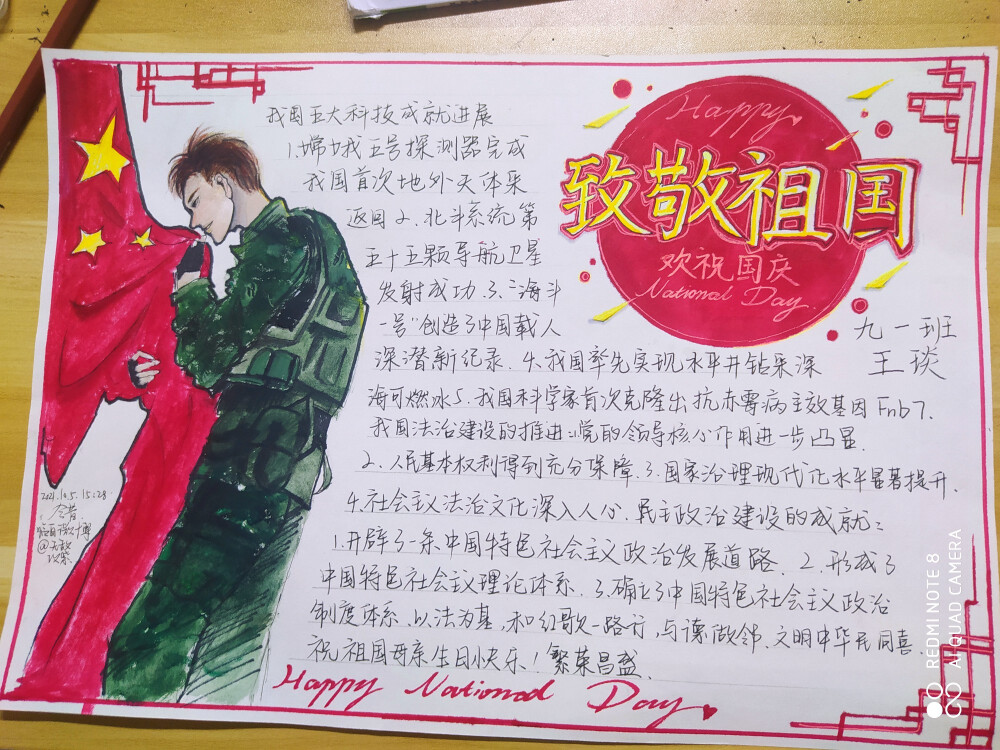 Happy
致敬祖国
欢祝国庆
National Day
九一班
王琰
我国五大科技成就进展
1.嫦娥五号探测器完成
我国首次地外天体采
返回2.北斗系统第
五十五颗导航卫星
发射成功.3.“海斗
一号”创造了中国载人
深潜新纪录.4.我国率先实现水平井钻采深
海可燃冰5.我国科学家首次克隆出抗赤霉病主效基因Fhb7.
我国法治建设的推进:党的领导核心作用进一步凸显.
2.人民基本权利得到充分保障.3.国家治理现代化水平显著提升.
4.社会主义法治文化深入人心.民主政治建设的成就:
1.开辟了一条中国特色社会主义政治发展道路.2.形成了
中国特色社会主义理论体系.3.确立了中国特色社会主义政治
制度体系.以法为基,和红歌一路行,与德做邻.文明中华民同喜.
祝祖国母亲生日快乐!繁荣昌盛
Happy National Day
2021.10.5.15:28
REDMI NOTE 8
AI QUAD CAMERA